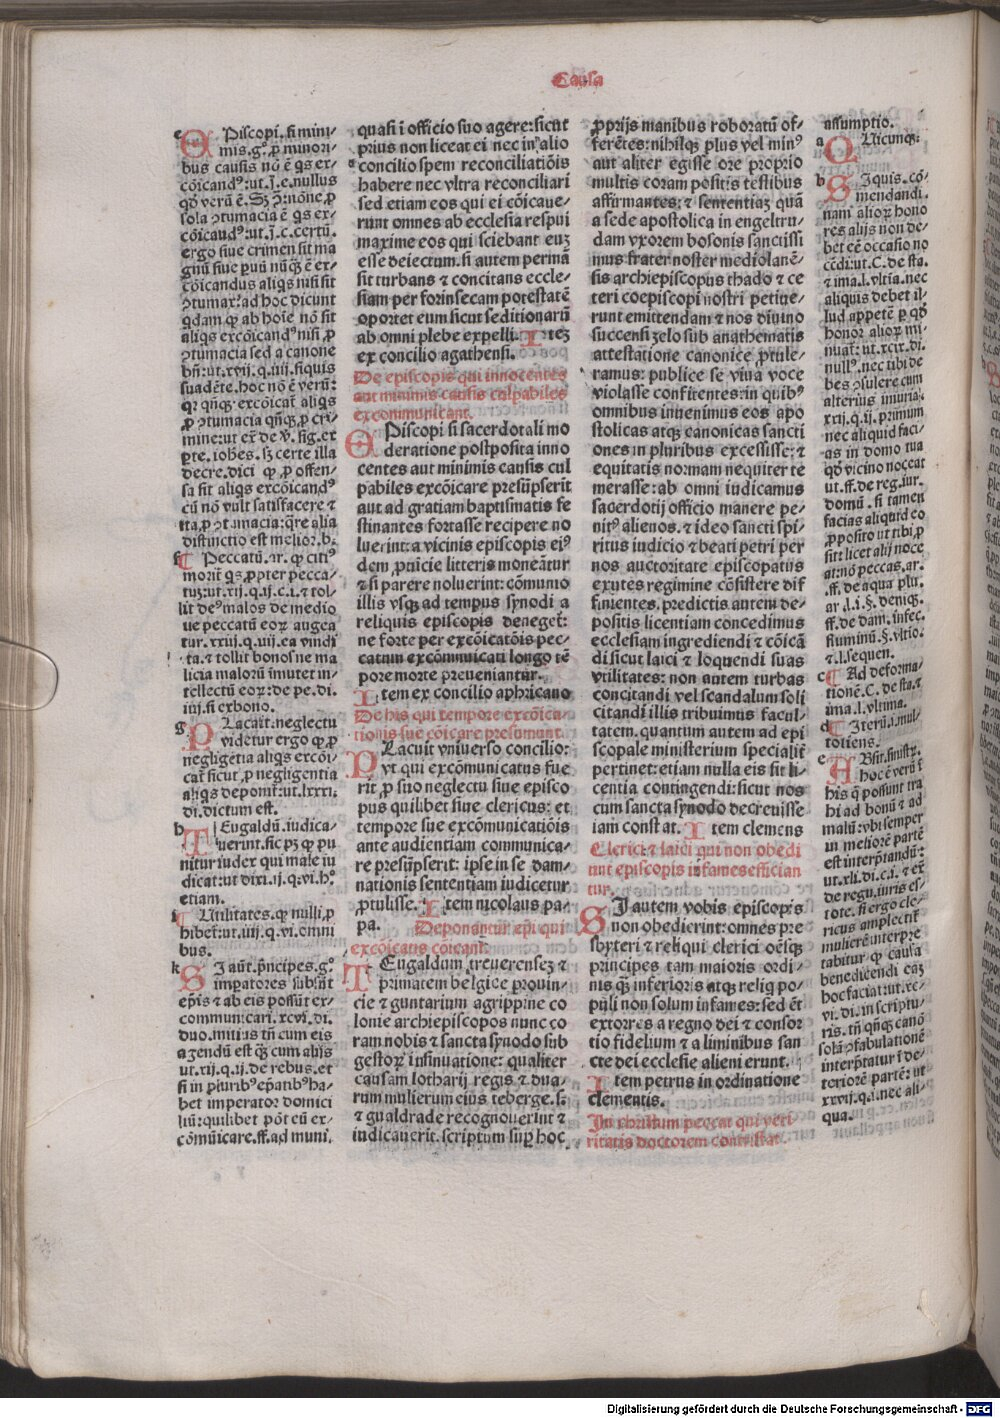 Causa
e EPiscopi. si mini/
mis. g°. ꝓ minori/
bus causis nō ē q̄s ex/
cōicand⁹: ut. j̄. e. nullus
qđ verū ē. Sꝫ ꝯ: nōne, ꝓ
sola ꝯtumacia ē q̄s ex/
cōicand⁹: ut. j̄. c. certū.
ergo siue crimen sit ma
gnū siue ꝑuū nūq̄ꝫ ē ex/
cōicandus aliq̄s nisi sit
ꝯtumax: ad hoc dicunt
q̄dam ꝙ ab hoīe nō sit
aliq̄s excōicand⁹ nisi, ꝓ
ꝯtumacia sed a canone
bn̄: ut. xvij. q. iiij. siquis
suadēte. hoc nō ē verū:
qꝛ qn̄qꝫ. excōicat̄ aliq̄s
ꝓ ꝯtumacia qn̄qꝫ, ꝓ cri/
mine: ut ext̄ de ꝟ. sig. ex
ꝑte. ioh̄es. sꝫ certe illa
decre. dici ꝙ ꝓ offen/
sa sit aliq̄s excōicand⁹
cū nō vult satisfacere ⁊
ita, ꝓ ꝯtumacia: q̄re alia
distinctio est melior. b.
f Peccatū. ar. ꝙ citi⁹
morit̄ q̄s ꝓpter pecca/
tuꝫ: ut. xij. q. ij. c. i. ⁊ tol/
lit de⁹ malos de medio
ue peccatū eoꝝ augea
tur. xxiij. q. iiij. ea vindi
ta. ⁊ tollit bonos ne ma
licia malorū īmutet in/
tellectū eoꝝ: de pe. di.
iiij. si ex bono.
g PLacait. neglectu
videtur ergo ꝙ, ꝓ
negligētia aliqs excōi/
cat̄ sicut, ꝓ negligentia
aliqs deponit̄: ut. lxxxi.
di. dictum est.
h TEugaldū. iudica/
uerint. sic pꝫ ꝙ pu
nitur iudex qui male iu
dicat: ut dixi. ij. q. vi. h°.
etiam.
i Vtilitates. ꝙ nulli, ꝓ
hibet̄: ut. iiij. q. vi. omni
bus.
k SI aūt. p̄ncipes. g°.
impatores subsūt
ep̄is ⁊ ab eis possūt ex/
communicari. xcvi. di.
duo. mitius tn̄ cum eis
agendū est q̄ꝫ cum alijs
ut. xij. q. ij. de rebus. et
si in pluribꝰ ep̄atibꝰ ha/
bet imperator domici
liū: quilibet pōt eū ex/
cōmūicare. ff. ad muni.
quasi ī officio suo agere: sicut
prius non liceat ei nec in alio
concilio spem reconciliatiōis
habere nec vltra reconciliari
sed etiam eos qui ei cōicaue/
runt omnes ab ecclesia respui
maxime eos qui sciebant euꝫ
esse deiectum. si autem permā
sit turbans ⁊ concitans eccle/
siam per forinsecam potestatē
oportet eum sicut seditionarū
ab omni plebe expelli. Iteꝫ
ex concilio agathensi.
De episcopis qui innocentes
aut minimis causis culpabiles
excommunicant.
EPiscopi si sacerdotali mo
deratione postposita inno
centes aut minimis causis cul
pabiles excōicare presūpserit
aut ad gratiam baptismatis fe
stinantes fortasse recipere no
luerint: a vicinis episcopis ei⁹
dem ꝓuīcie litteris moneātur
⁊ si parere noluerint: cōmunio
illis vsqꝫ ad tempus synodi a
reliquis episcopis denegeṫ:
ne forte per excōicatōis pec/
catum excōmuicati longo tē
pore morte preueniantur.
Item ex concilio aphricano
De his qui tempore excōica/
tionis sue cōicare presumunt.
PLacuit vniuerso concilio:
vt qui excōmunicatus fue
rit, ꝓ suo neglectu siue episco
pus quilibet siue clericus: et
tempore sue excōmunicatiōis
ante audientiam communica/
re presūpserit: ipse in se dam/
nationis sententiam iudicetur
ꝓtulisse. Item nicolaus pa/
pa. Deponantur ep̄i qui
excōicatis cōicant.
TEugaldum treuerensez ⁊
primatem belgice prouin/
cie ⁊ guntarium agrippine co
lonie archiepiscopos nunc co
ram nobis ⁊ sancta synodo sub
gestoꝝ insinuatione: qualiter
causam lotharij regis ⁊ dua/
rum mulierum eius teberge. s.
⁊ gualdrade recognouerint ⁊
iudicauerit. scriptum sup̄ hoc
ꝓprijs manibus roboratū of/
ferētes: nihilqꝫ plus vel min⁹
aut aliter egisse ore proprio
multis coram positis testibus
affirmantes: ⁊ sententiaꝫ quā
a sede apostolica in engeltru/
dam vxorem bosonis sanctissi
mus frater noster mediolanē/
sis archiepiscopus thado ⁊ ce
teri coepiscopi nostri petiue/
runt emittendam ⁊ nos diuino
succensi zelo sub anathematis
attestatione canonice ꝓtule/
ramus: publice se viua voce
violasse confitentes: in quib⁹
omnibus inuenimus eos apo
stolicas atqꝫ canonicas sancti
ones in pluribus excessisse: ⁊
equitatis normam nequiter te
merasse: ab omni iudicamus
sacerdotij officio manere pe/
nit⁹ alienos. ⁊ ideo sancti spi/
ritus iudicio ⁊ beati petri per
nos auctoritate episcopatus
exutos regimine cōsistere dif
finientes. predictis autem de/
positis licentiam concedimus
ecclesiam ingrediendi ⁊ cōicā
di sicut laici ⁊ loquendi suas
vtilitates: non autem turbas
concitandi vel scandalum soli
citandi illis tribuimus facul/
tatem. quantum autem ad epi
scopale ministerium specialit̄
pertinet: etiam nulla eis sit li/
centia contingendi: sicut nos
cum sancta synodo decreuisse
iam constat. Item clemens
Clerici ⁊ laici qui non obedi
unt episcopis infames efficiun
tur.
SI autem vobis episcopis
non obedierint: omnes pre
sbyteri ⁊ reliqui clerici oēsqꝫ
principes tam maioris ordi/
nis qꝫ inferioris atqꝫ reliq̄ po/
puli non solum infames: sed ēt
extorres a regno dei ⁊ consor
tio fidelium ⁊ a liminibus san
cte dei ecclesie alieni erunt.
Item petrus in ordinatione
clementis.
In christum peccat qui veri
ritatis doctorem contristat.
assumptio.
a QUicunqꝫ:
b SIquis. cō/
mendandi.
nam alioꝝ hono
res alijs non de/
bet eē occasio no
cēdi: ut. C. de sta.
⁊ ima. l. vltīa. nec
aliquis debet il/
lud appetē ꝑ qđ
honor alioꝝ mi/
nuat̄: ut. xcix. di.
null⁹. nec tibi de
bes ꝯsulere cum
alterius iniuria.
xxij. q. ij. primum
nec aliquid faci/
as in domo tua
qđ vicino noceat
ut. ff. de reg. iur.
domū. si tamen
facias aliquid eo
ꝓposito ut tibi, ꝓ
sit: licet alij noce
at: nō peccas. ar.
ff. de aqua plu.
ar. l. i. §. deniqꝫ.
ff. de dam. infec.
fluminū. §. vltio.
⁊. l. sequen.
c Ad deforma/
tionē. C. de sta. ⁊
ima. l. vltima.
d Iterū. i. mul/
totiens.
e ABsit. sinistr.
hoc ē verū ī
his q̄ possunt tra
hi ad bonū ⁊ ad
malū: vbi semper
in meliorē partē
est interp̄tandū:
ut. xli. di. c. i. ⁊ ex̄
de regu. iuris es/
tote. si ergo cle/
ricus amplectit̄
mulierē interpre
tabitur ꝙ causa
benedicēdi eaꝫ
hoc faciat: ut. xc/
vi. di. in scriptu/
ris. tn̄ qn̄qꝫ canō
solā ꝯfabulationē
interp̄tatur ī de/
teriorē partē: ut
xxvij. q. i. nec ali/
qua.
Digitalisierung gefördert durch die Deutsche Forschungsgemeinschaft - DFG